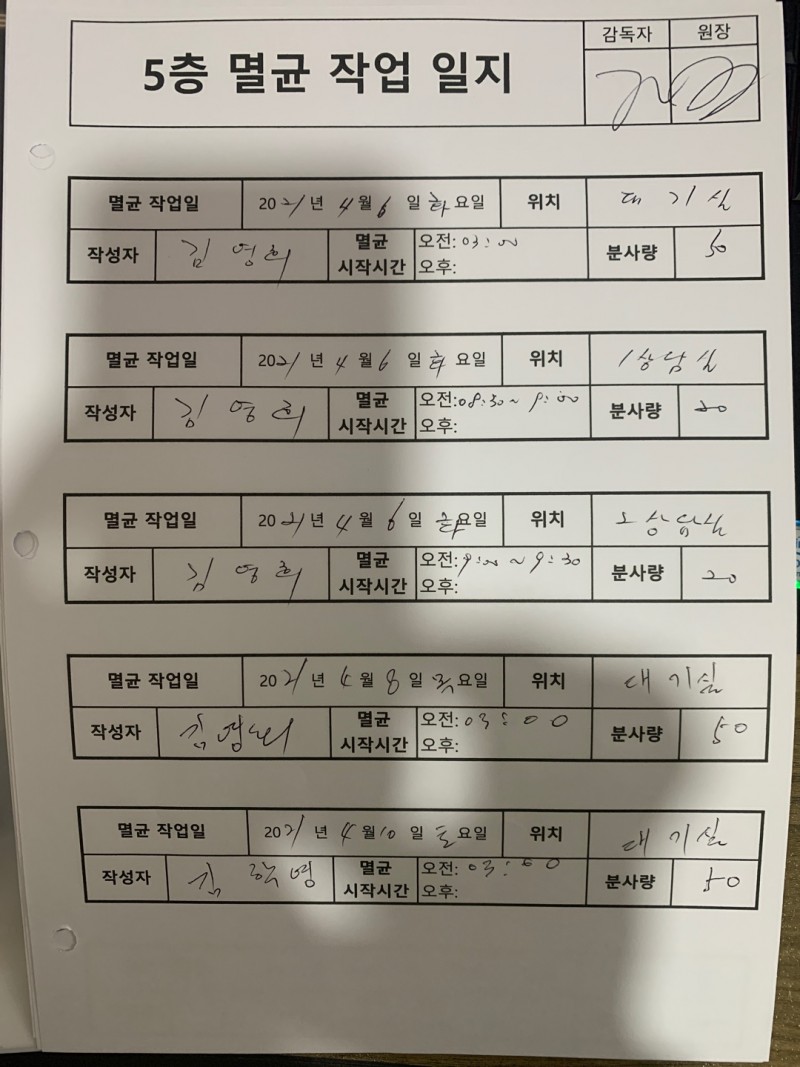 5층 멸균 작업 일지
감독자 원장
멸균 작업일 2021년 4월 6일 화요일 위치 대기실
작성자 김영희 멸균 시작시간 오전: 03:00 분사량 50
오후:
멸균 작업일 2021년 4월 6일 화요일 위치 1상담실
작성자 김영희 멸균 시작시간 오전: 08:30~9:00 분사량 20
오후:
멸균 작업일 2021년 4월 6일 화요일 위치 2상담실
작성자 김영희 멸균 시작시간 오전: 9:00~9:30 분사량 20
오후:
멸균 작업일 2021년 4월 8일 목요일 위치 대기실
작성자 멸균 시작시간 오전: 03:00 분사량 50
오후:
멸균 작업일 2021년 4월 10일 토요일 위치 대기실
작성자 멸균 시작시간 오전: 03:00 분사량 50
오후: